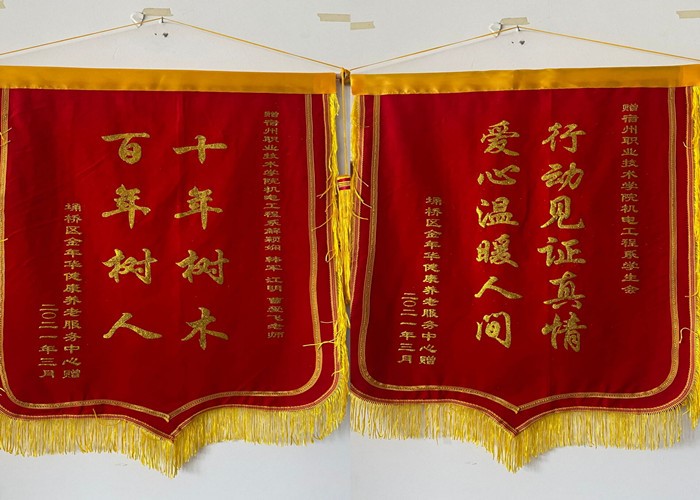 赠宿州职业技术学院机电工程系解颖娴 林军 江明 曹登飞老师
十年树木
百年树人
埇桥区金年华健康养老服务中心赠
二〇二一年三月
赠宿州职业技术学院机电工程系学生会
行动见证真情
爱心温暖人间
埇桥区金年华健康养老服务中心赠
二〇二一年三月